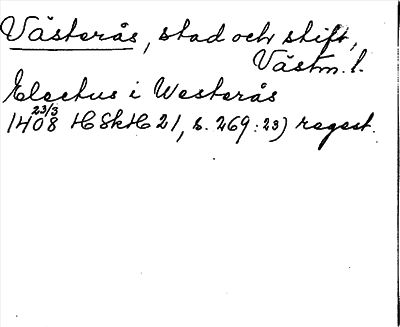 Västerås, stad och stift,
Västm. l.
Electus i Westerås
23/3
1408 HSkH 21, s. 269:23) regest.